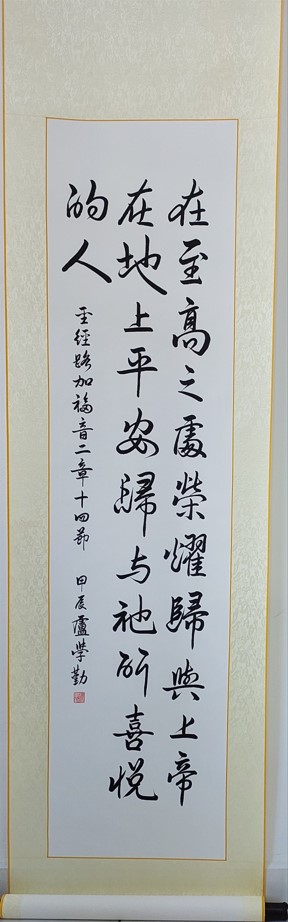 在至高之處榮耀歸與上帝
在地上平安歸与祂所喜悅
的人
圣經路加福音二章十四節 甲辰盧學勤